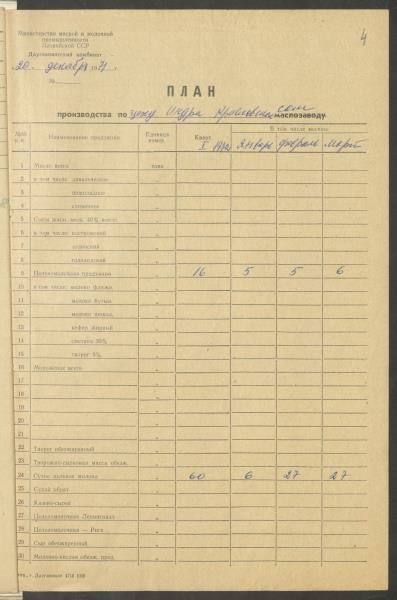 4
Министерство мясной и молочной
промышленности
Латвийской ССР
Даугавпилсский комбинат
„20“ декабря 1971 г.
№
ПЛАН
производства по цеху Индра маслозаводу
№№ п. п. Наименование продукции Единица измер. Кварт. I 1972 В том числе месяцы
Январь февраль март
1 Масло всего тонн
2 в том числе: любительское „
3 шоколадное „
4 „
5 „
6 в том числе: костромской „
7 „
8 голландский „
9 Цельномолочная продукция „ 16 5 5 6
10 в том числе: молоко фляжн. „
11 молоко бутыл. „
12 молоко „
13 кефир жирный „
14 сметана 30% „
15 творог 9% „
16 Мороженое всего „
17 „
18 „
19 „
20 „
21 „
22 Творог обезжиренный „
23 Творожно-сырковая масса обезж. „
24 Сухое цельное молоко „ 60 6 27 27
25 Сухой обрат „
26 Казеин-сырец „
27 Цельномолочная Ленинград „
28 Цельномолочная — Рига „
29 Сыр обезжиренный „
30 Молочно-кислая обезж. прод. „